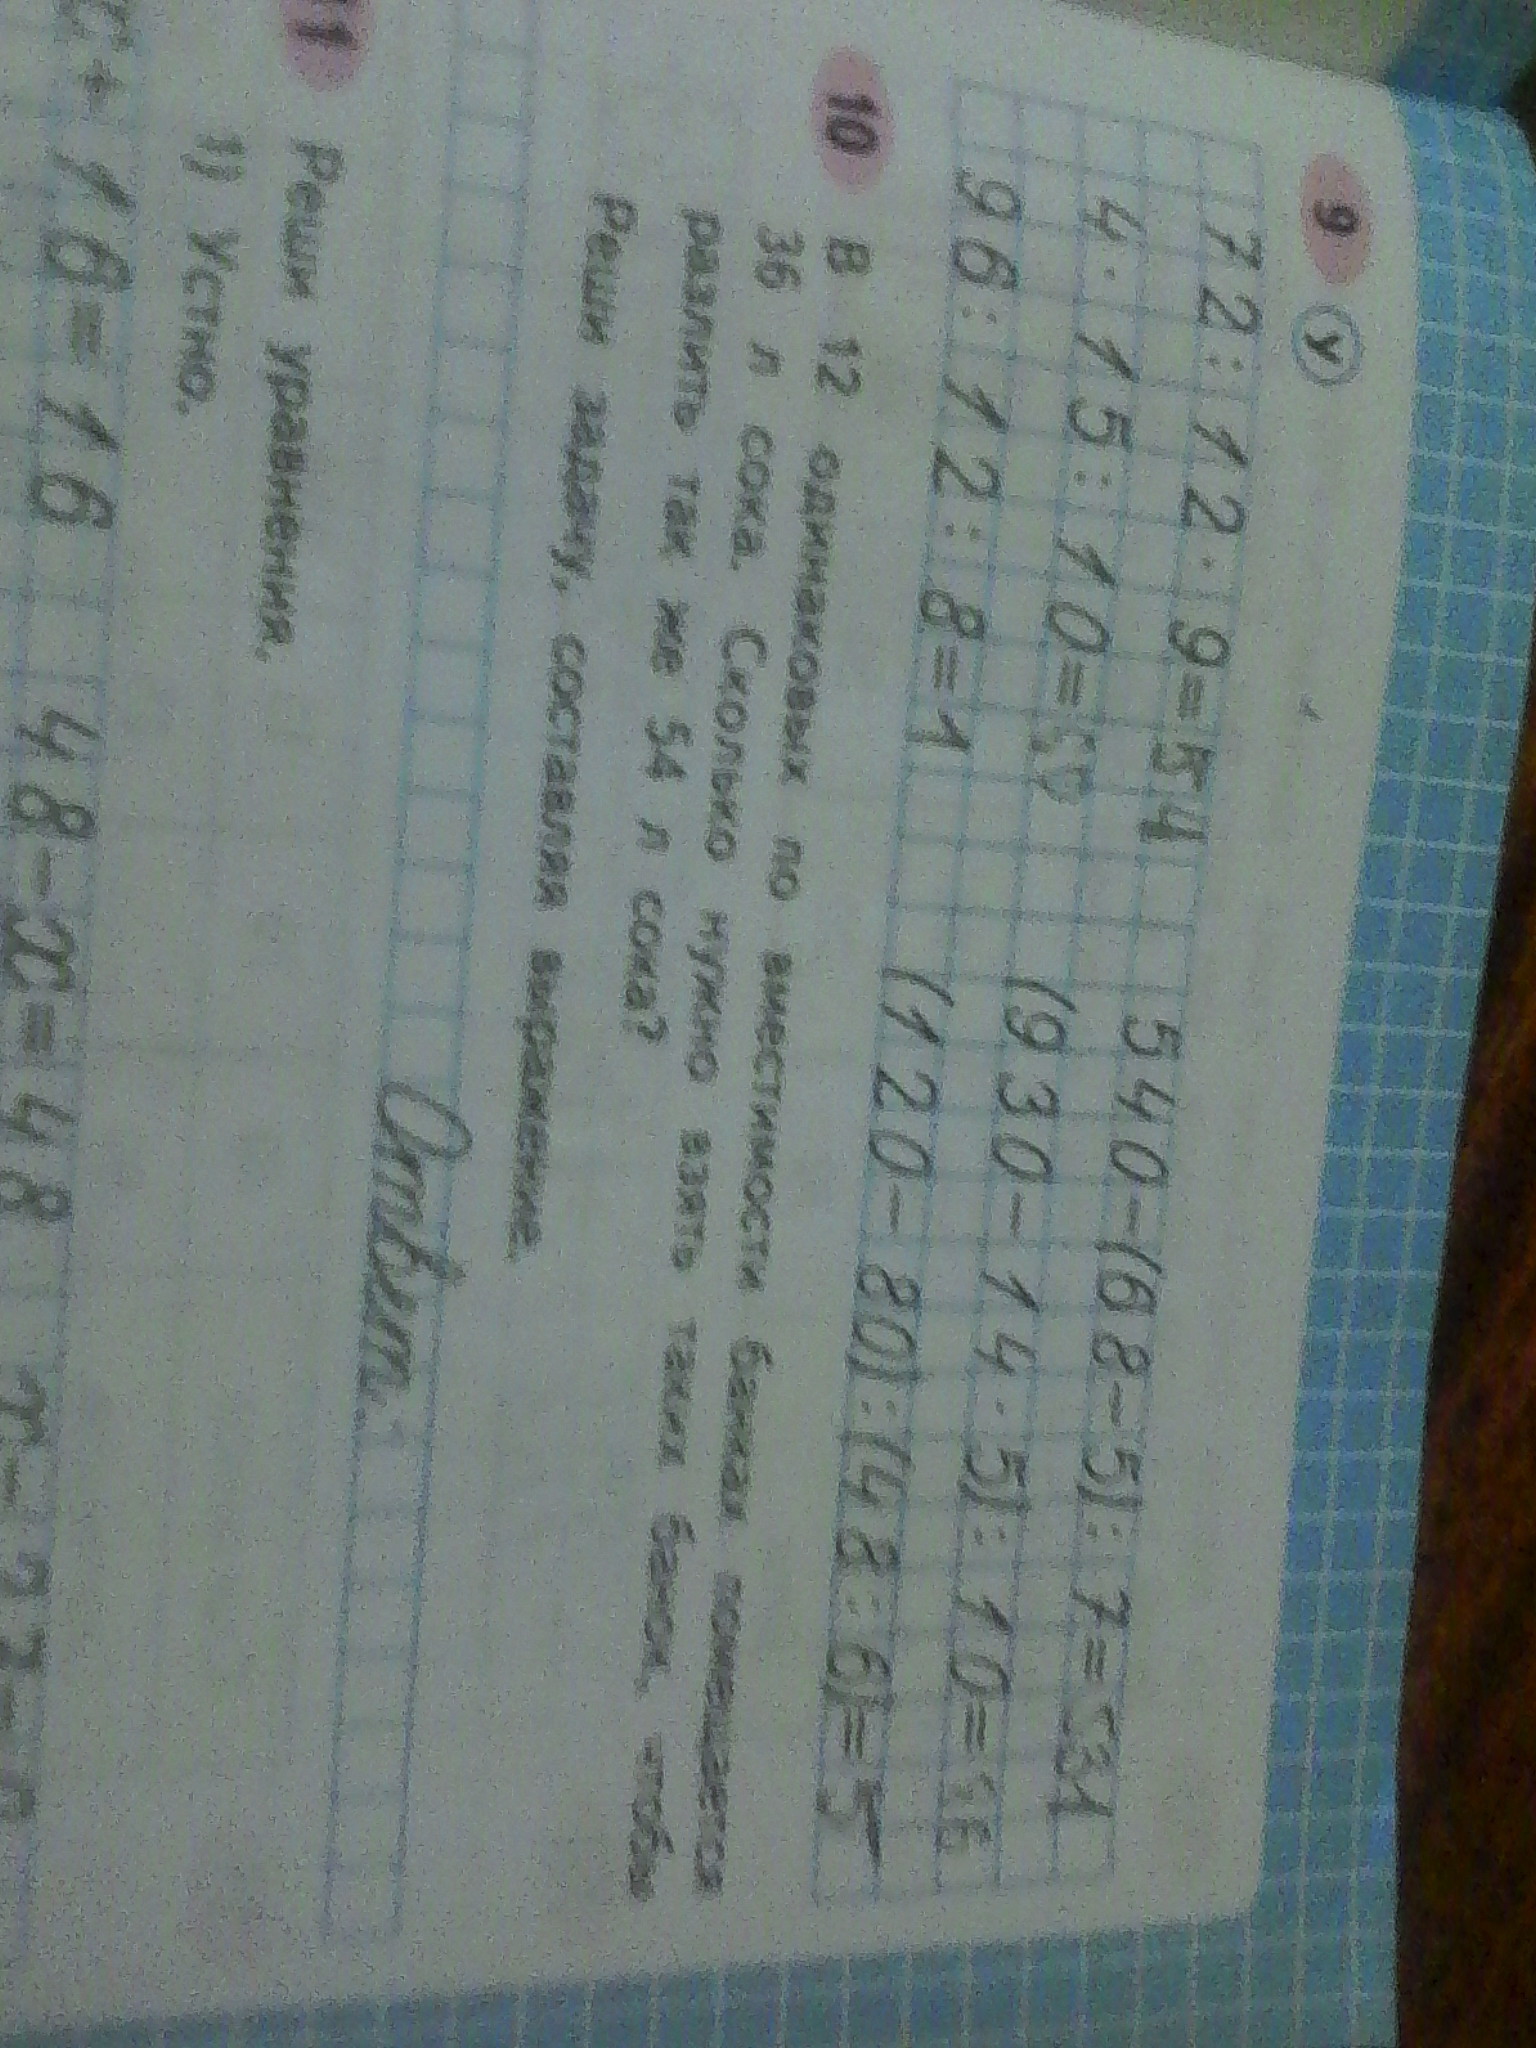 9 У
72:12·9=54 540-(68-5):7=531
4·15:10= (930-14·5):10=
96:12:8=1 (120-80):(48:6)=5
10 В 12 одинаковых по вместимости банках помещается
36 л сока. Сколько нужно взять таких банок, чтобы
разлить так же 54 л сока?
Реши задачу, составляя выражение.
Ответ:
11 Реши уравнения.
1) Устно.
x+16=16 48-x=48